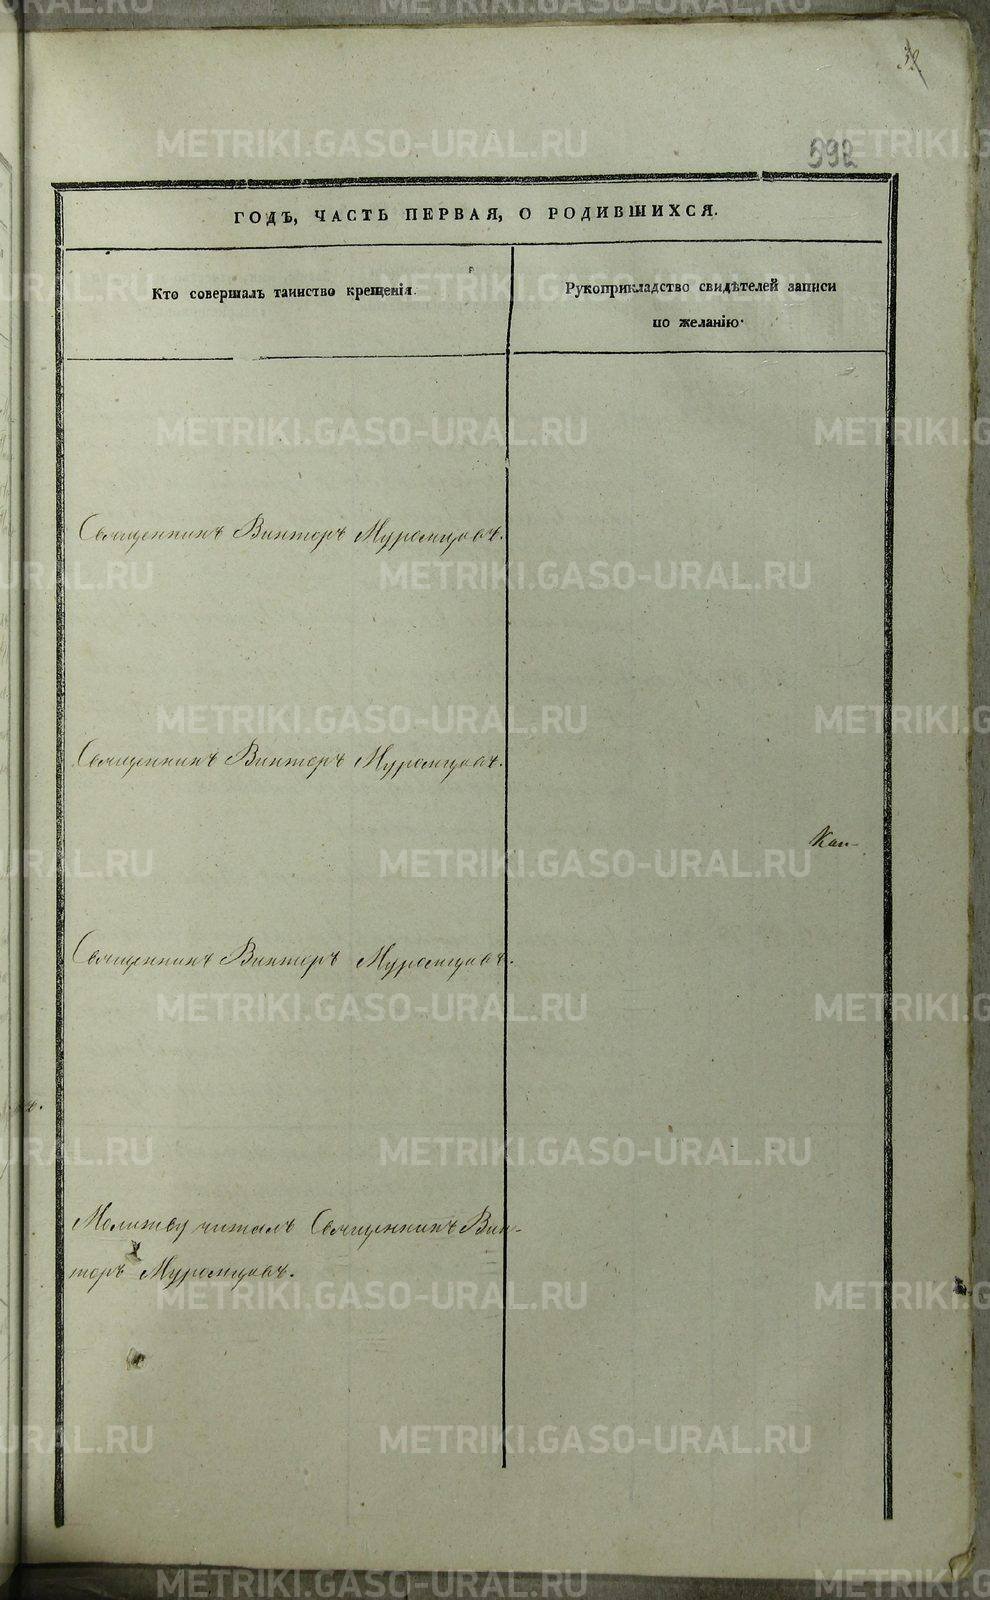 METRIKI.GASO-URAL.RU
592
ГОДЪ, ЧАСТЬ ПЕРВАЯ, О РОДИВШИХСЯ.
Кто совершалъ таинство крещенія.
Рукоприкладство свидѣтелей записи
по желанію.
Священникъ Викторъ Муромцовъ.
Священникъ Викторъ Муромцовъ.
Кол-
Священникъ Викторъ Муромцовъ.
Молитву читалъ Священникъ Вик-
торъ Муромцовъ.